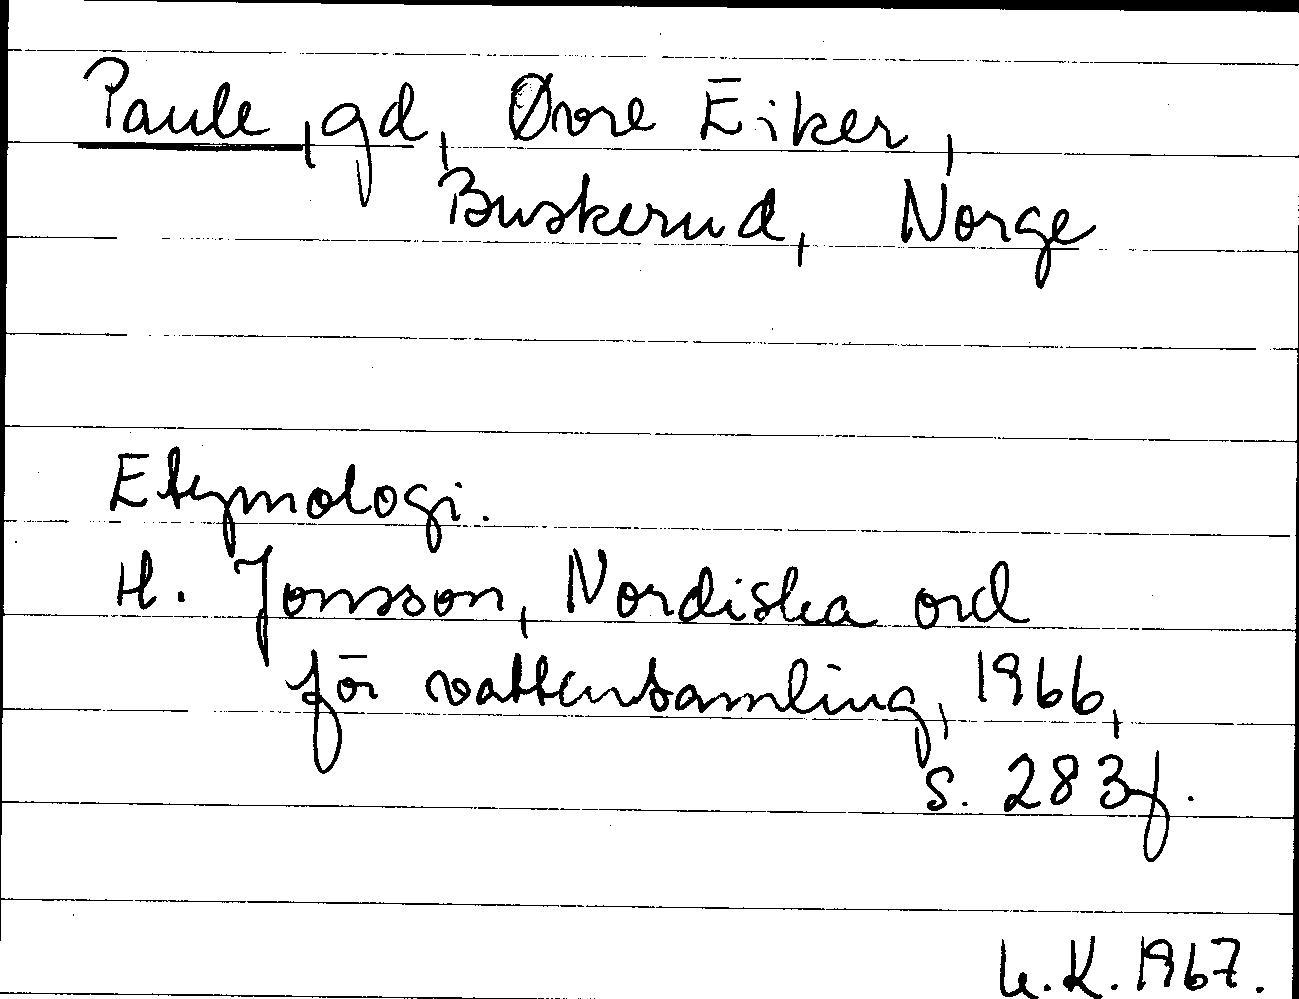 Paule, gd, Øvre Eiker,
Buskerud, Norge
Etymologi.
H. Jonsson, Nordiska ord
för vattensamling, 1966,
s. 283f.
K. 1967.